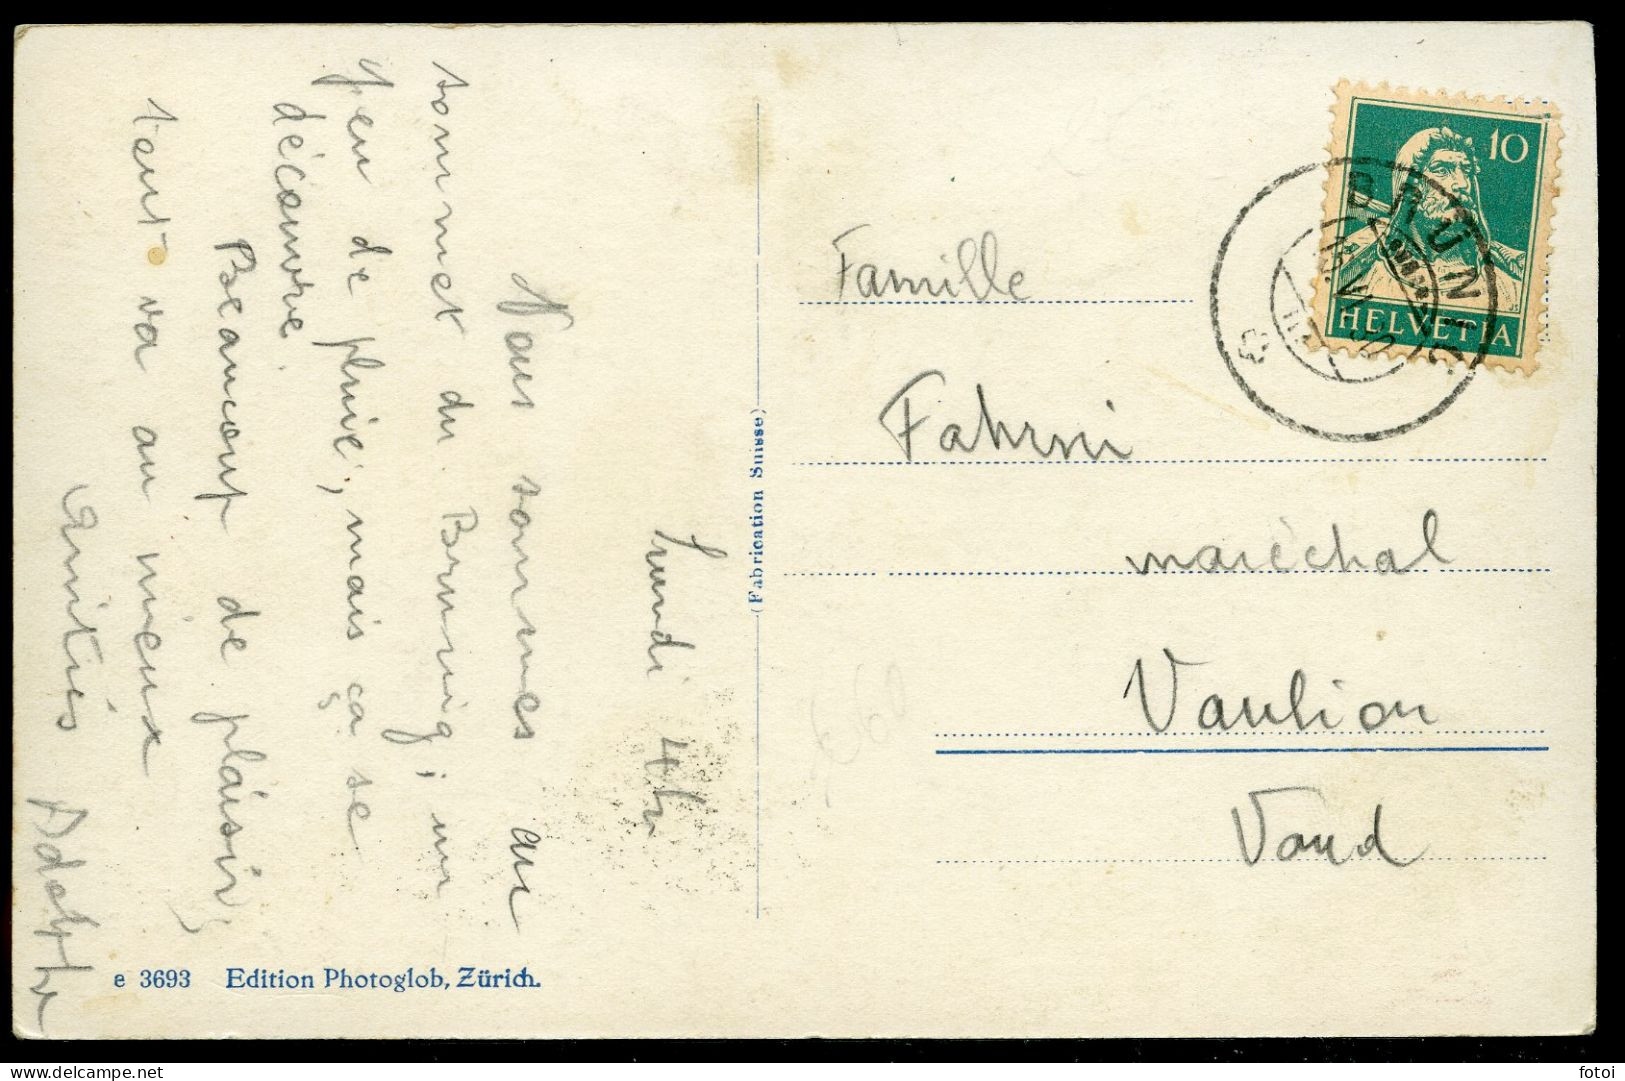 Lundi 4 hr
Nous sommes au
sommet du Brunnig; un
peu de pluie, mais ça se
découvre.
Beaucoup de plaisir,
tout va au mieux
Amitiés Adolphe
e 3693 Edition Photoglob, Zürich.
(Fabrication Suisse)
10
HELVETIA
BRÜNIG
Famille
Fahrni
maréchal
Vaulion
Vaud
delcampe.net
fotoi